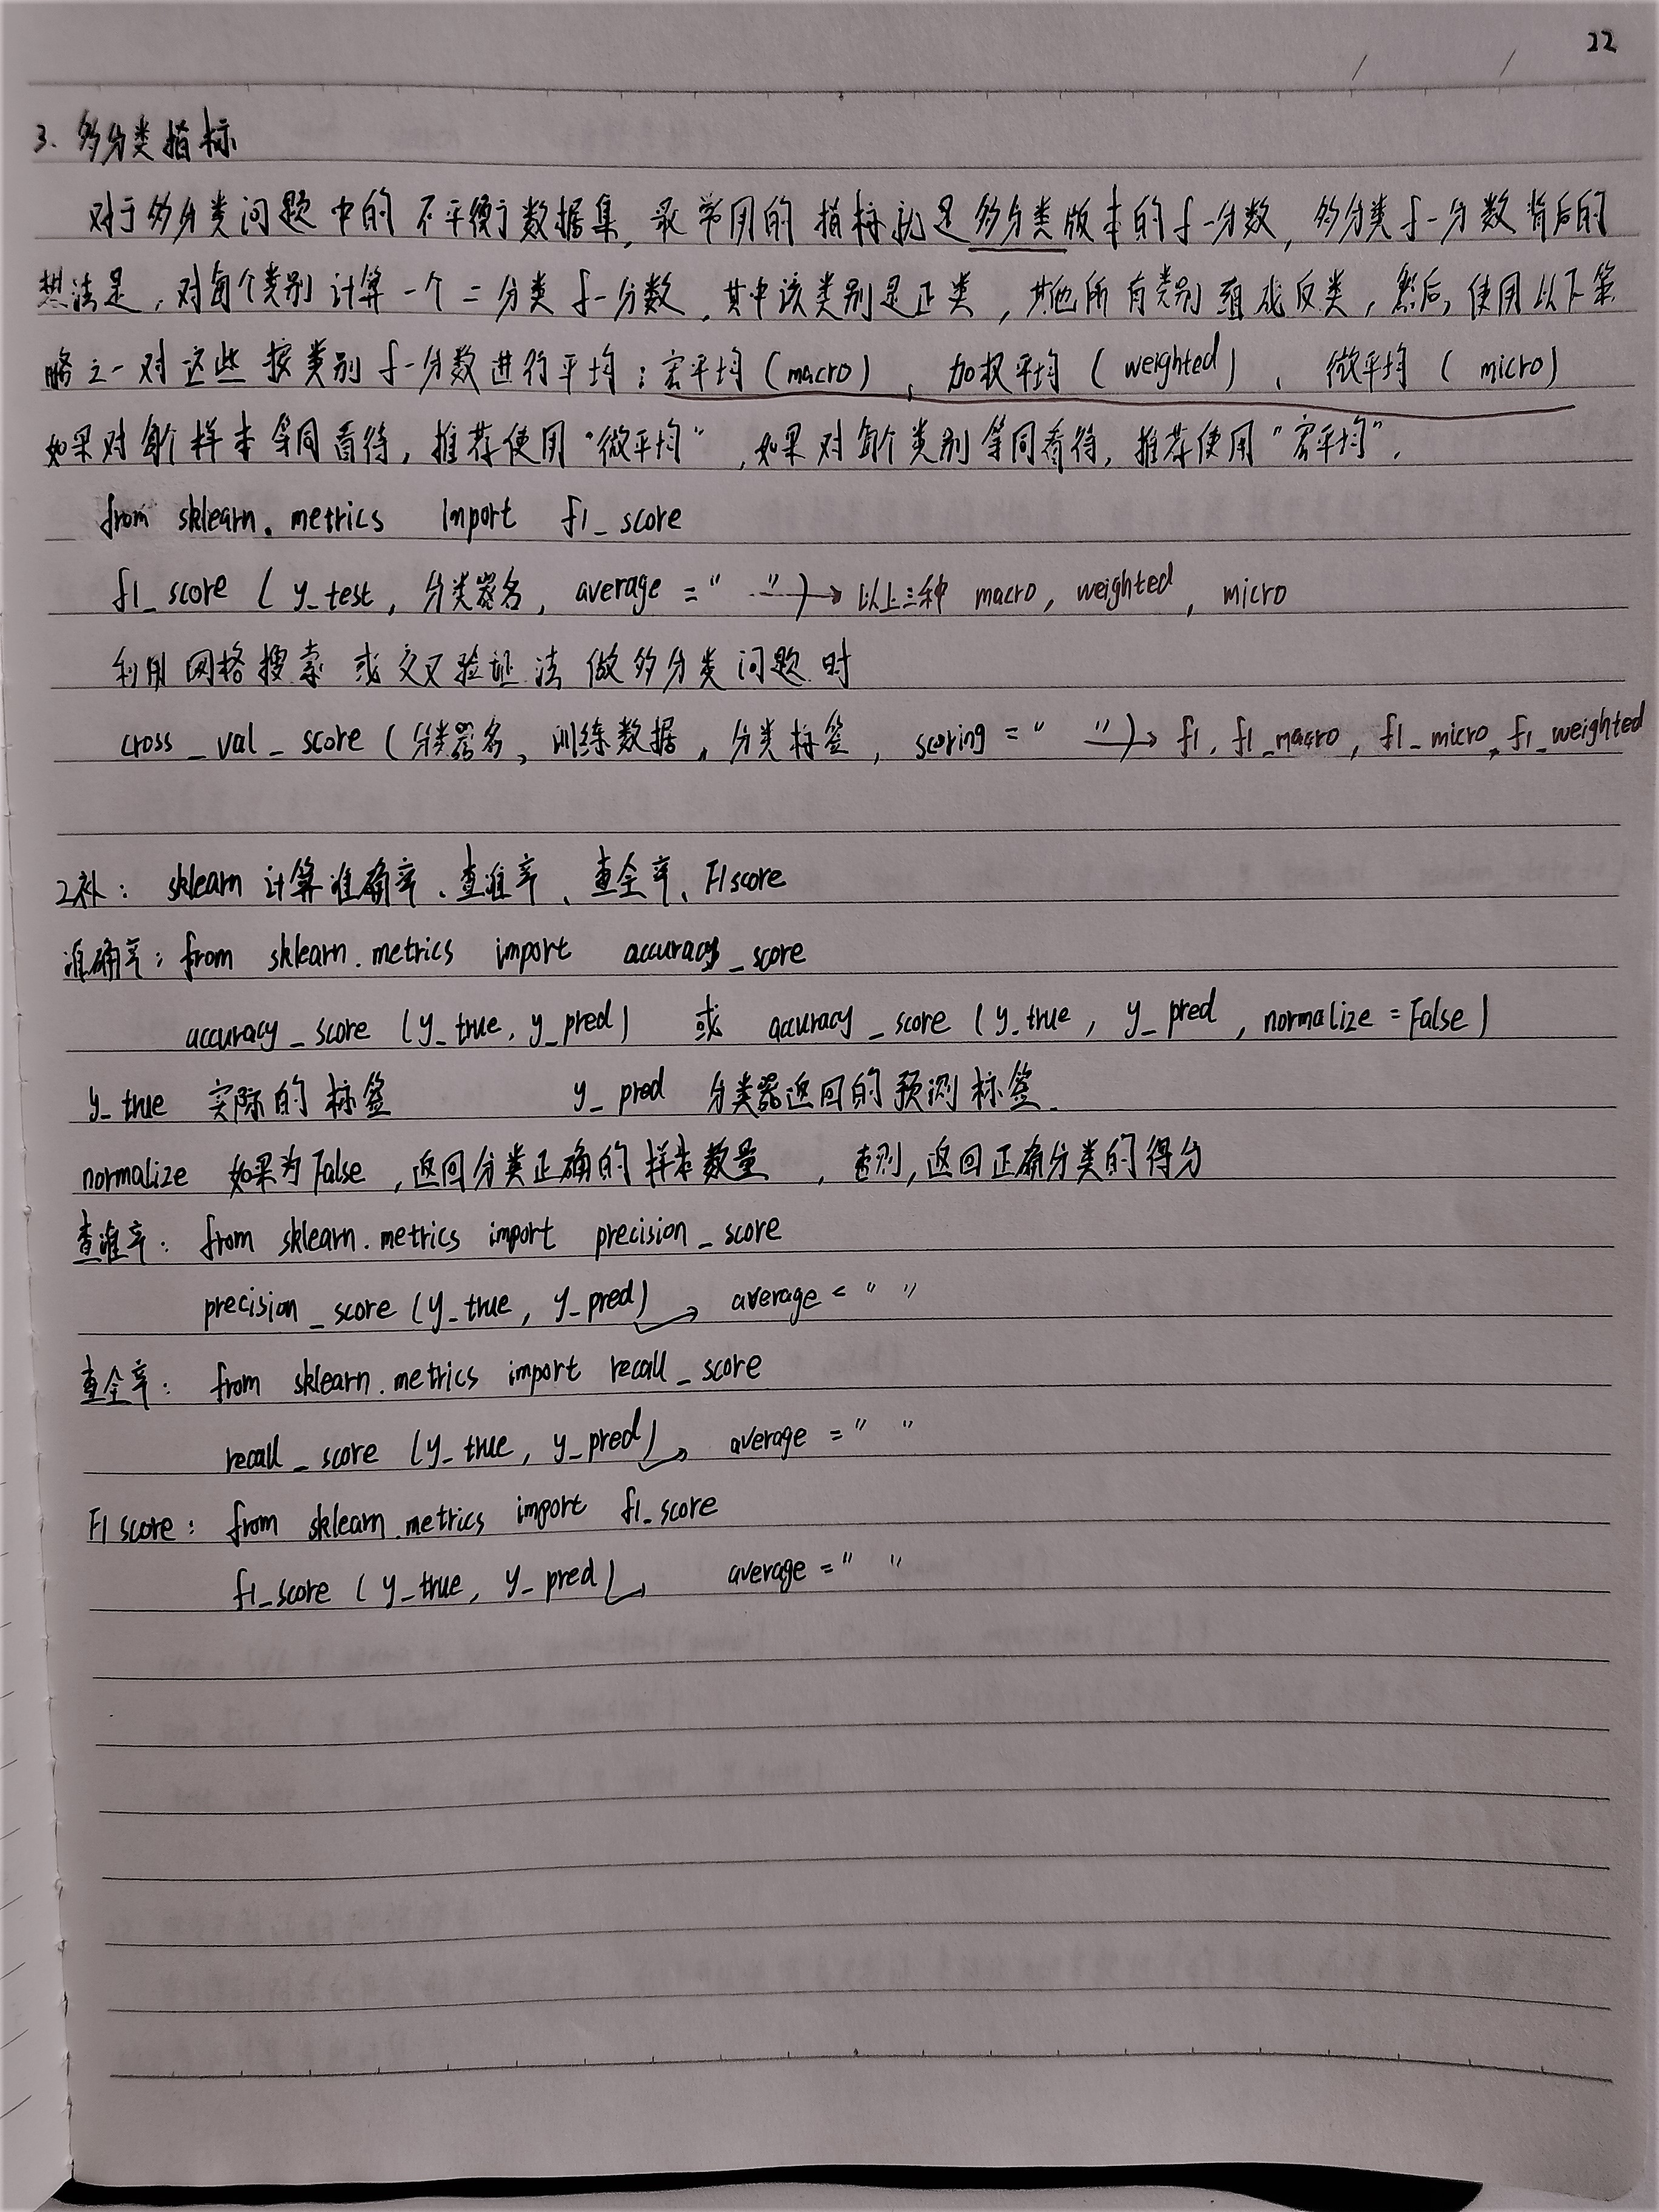 22
3. 多分类指标
对于多分类问题中的不平衡数据集, 最常用的指标就是多分类版本的f-分数, 多分类f-分数背后的
想法是, 对每个类别计算一个二分类f-分数, 其中该类别是正类, 其他所有类别组成反类, 然后, 使用以下策
略之一对这些按类别f-分数进行平均: 宏平均(macro), 加权平均(weighted)、微平均(micro)
如果对每个样本等同看待, 推荐使用"微平均", 如果对每个类别等同看待, 推荐使用"宏平均".
from sklearn.metrics import f1_score
f1_score (y_test, 分类器名, average=" ") → 以上三种 macro, weighted, micro
利用网格搜索或交叉验证法做多分类问题时
cross_val_score (分类器名, 训练数据, 分类标签, scoring=" ") → f1, f1_macro, f1_micro, f1_weighted
2补: sklearn 计算准确率、查准率、查全率、F1score
准确率: from sklearn.metrics import accuracy_score
accuracy_score (y_true, y_pred) 或 accuracy_score (y_true, y_pred, normalize=False)
y_true 实际的标签 y_pred 分类器返回的预测标签
normalize 如果为False, 返回分类正确的样本数量, 否则, 返回正确分类的得分
查准率: from sklearn.metrics import precision_score
precision_score (y_true, y_pred) → average=" "
查全率: from sklearn.metrics import recall_score
recall_score (y_true, y_pred) → average=" "
F1 score: from sklearn.metrics import f1_score
f1_score (y_true, y_pred) → average=" "